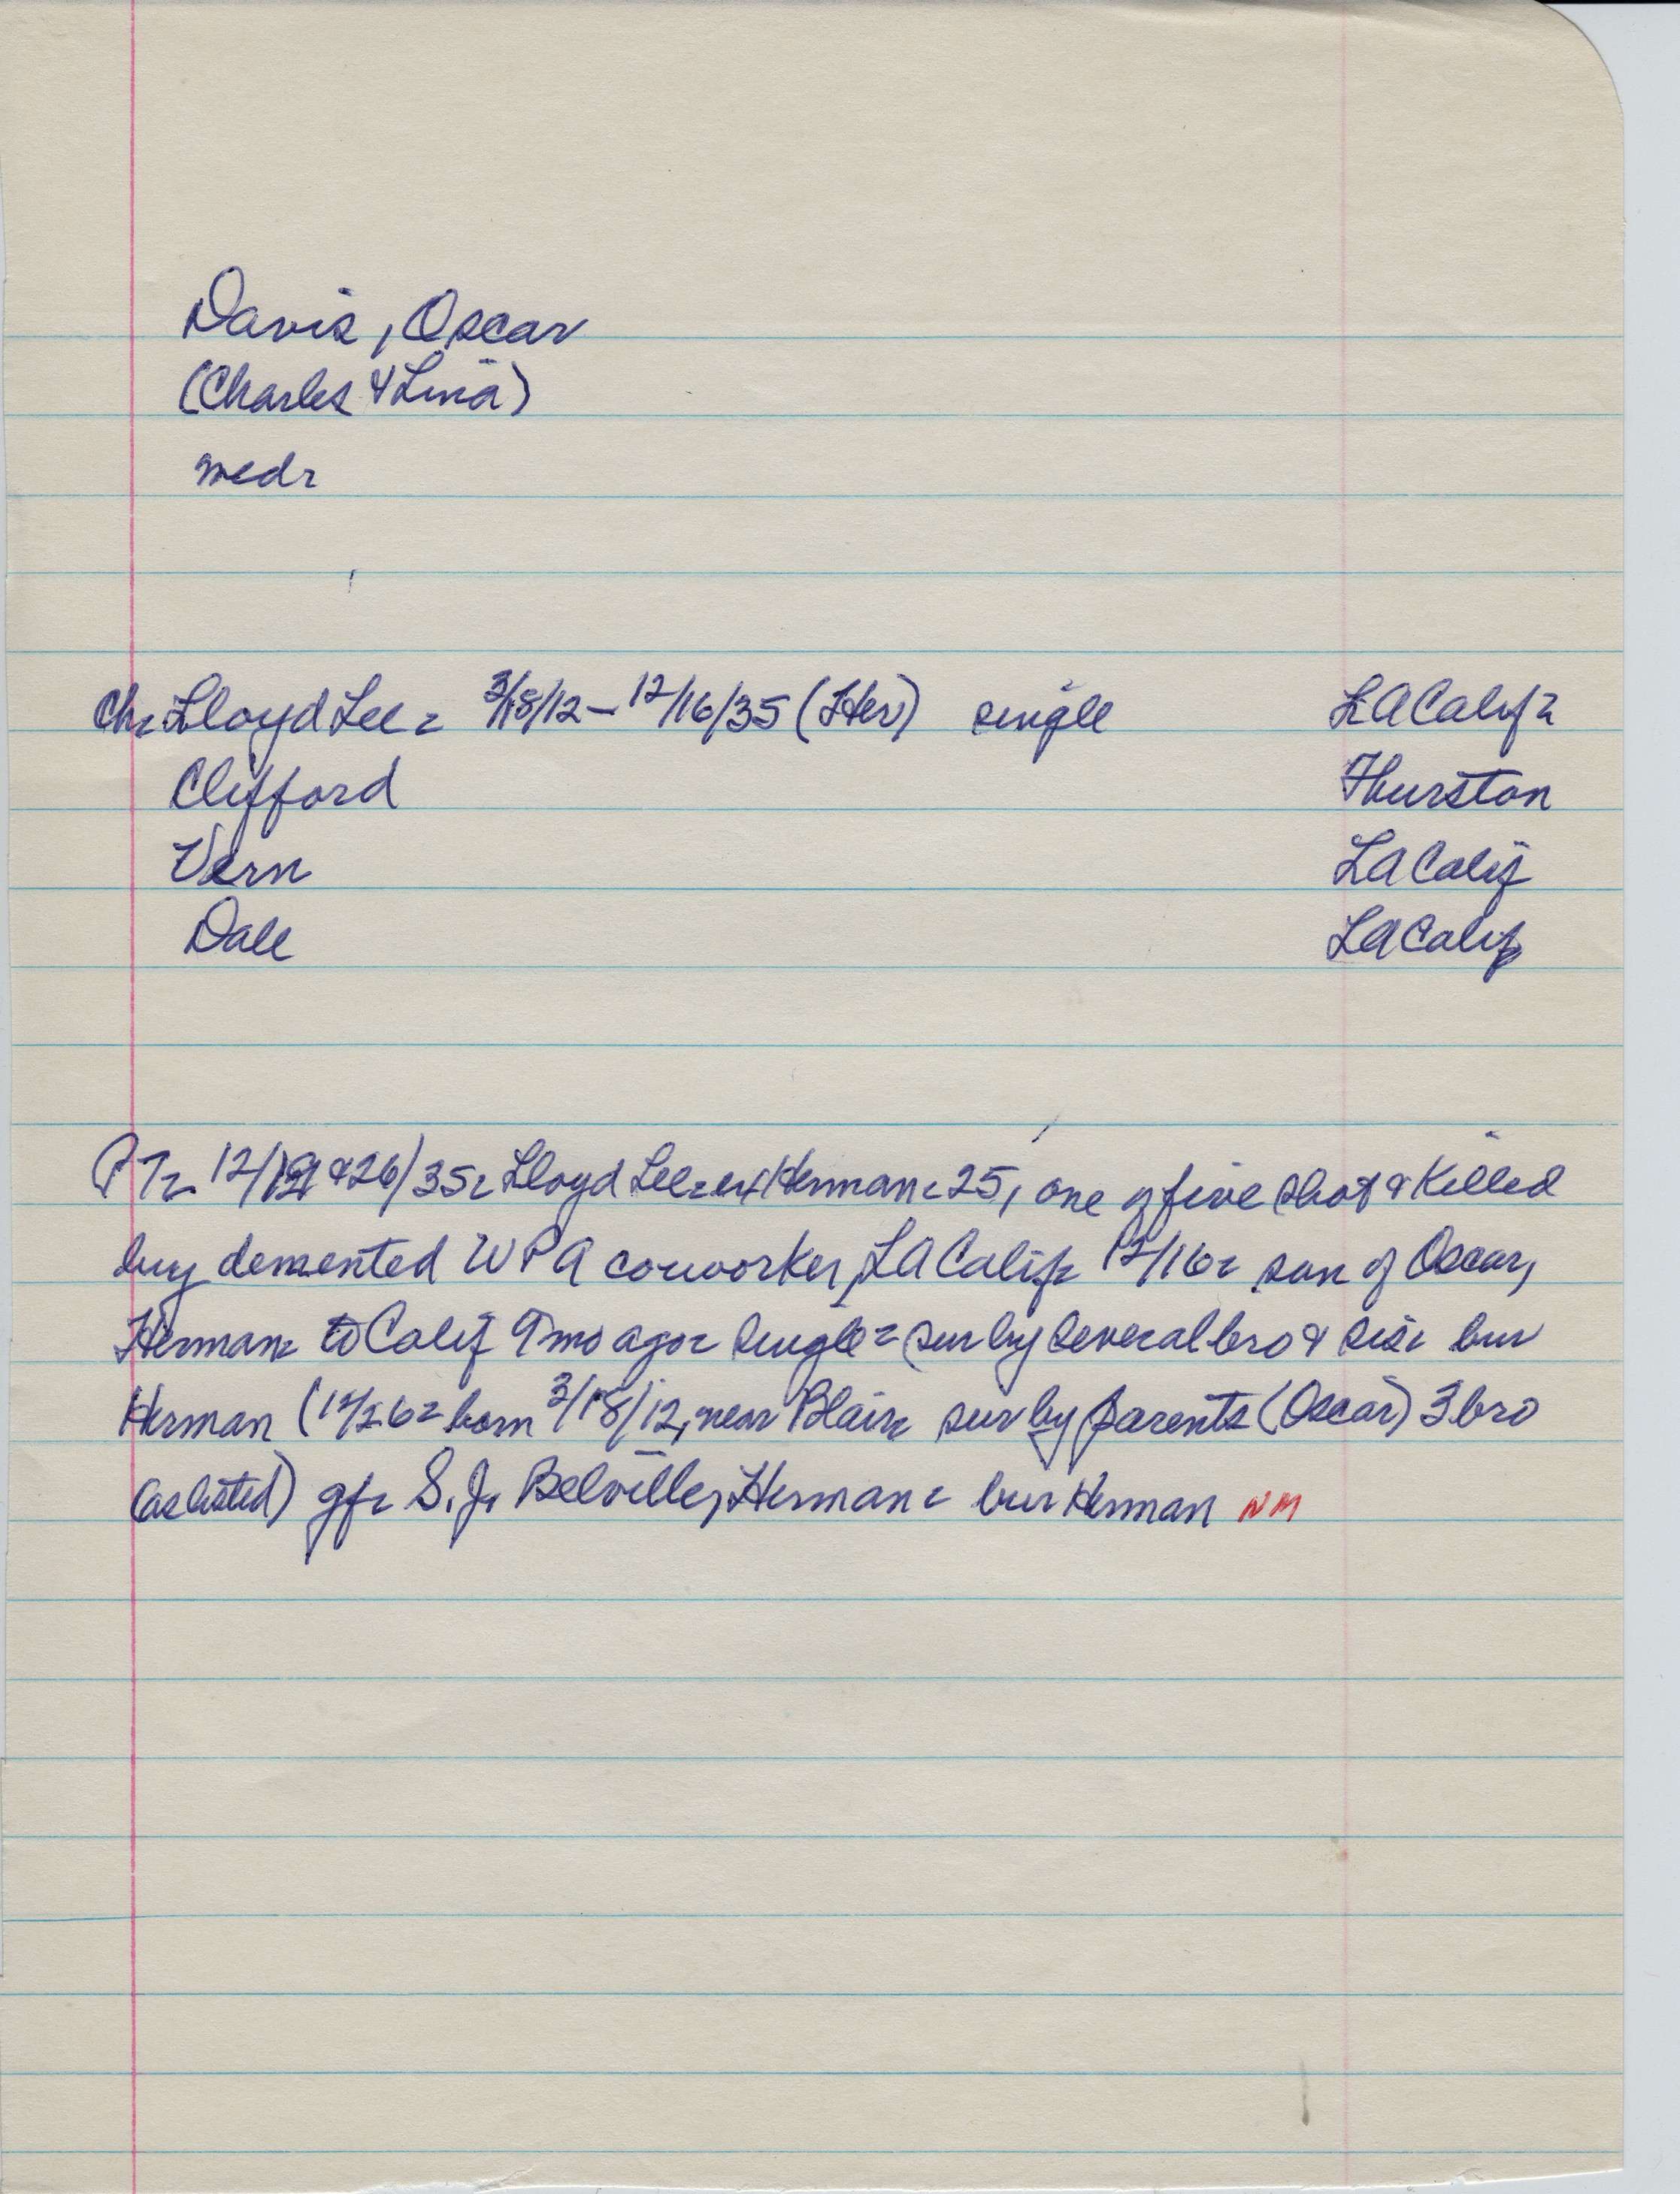 Davis, Oscar
(Charles & Lina)
med-
Ch- Lloyd Lee - 3/18/12 - 12/16/35 (Her) single LA Calif-
Clifford Thurston
Vern LA Calif
Dale LA Calif
PT- 12/19 & 26/35- Lloyd Lee - ex Herman - 25, one of five shot & killed
by demented WPA coworker, LA Calif- 12/16- son of Oscar,
Herman- to Calif 9 mo ago- single - sur by several bro & sis- bur
Herman (12/26- born 3/18/12, near Blair- sur by parents (Oscar) 3 bro
(as listed) gf- S. J. Belville, Herman - bur Herman NM